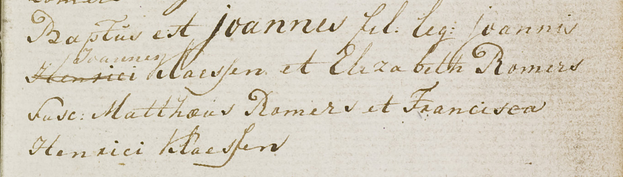 Baptus est Joannes fil: leg: Joannis
Joannes
Henrici Klaessen et Elizabeth Romers
Susc: Matthæus Romers et Francisca
Henrici Klaessen